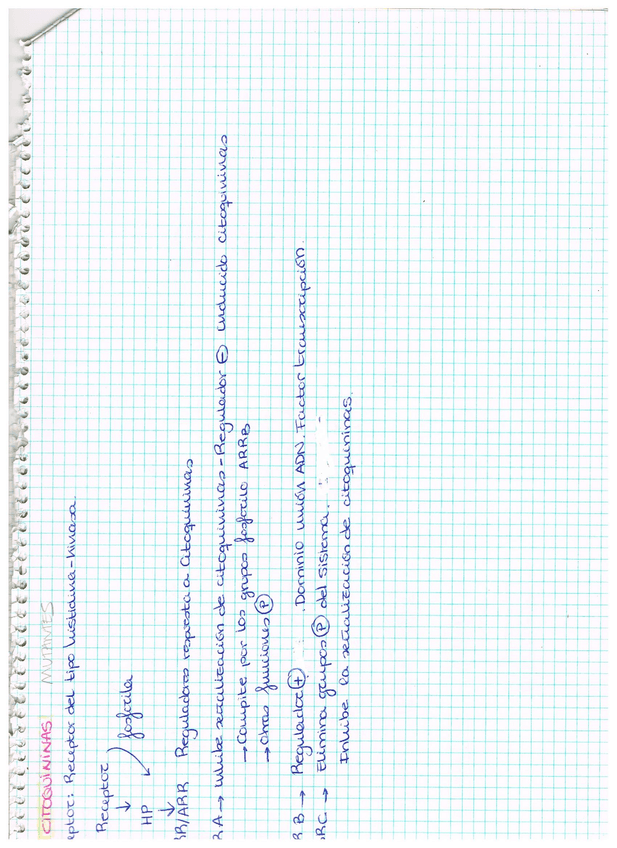 CITOQUININAS MUTANTES
eptor: Receptor del tipo histidina-kinasa.
Receptor
↓ fosforila
HP
↓
RR/ARR Reguladores respuesta a Citoquininas
RA → Inhibe señalización de citoquininas - Regulador ⊖ inducido citoquininas
→ Compite por los grupos fosforilo ARRB
→ Otras funciones Ⓟ
R B → Regulador ⊕ . Dominio unión ADN. Factor transcripción.
RC → Elimina grupos Ⓟ del sistema.
Inhibe la señalización de citoquininas.